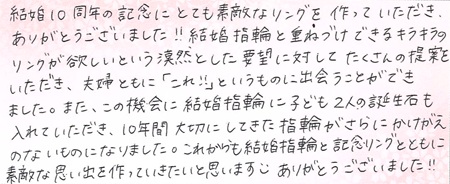 結婚10周年の記念にとても素敵なリングを作っていただき、
ありがとうございました!!結婚指輪と重ねづけできるキラキラの
リングが欲しいという漠然とした要望に対してたくさんの提案を
いただき、夫婦ともに「これ!!」というものに出会うことができ
ました。また、この機会に結婚指輪に子ども2人の誕生石も
入れていただき、10年間大切にしてきた指輪がさらにかけがえ
のないものになりました。これからも結婚指輪と記念リングとともに
素敵な思い出を作っていきたいと思います☺ ありがとうございました!!